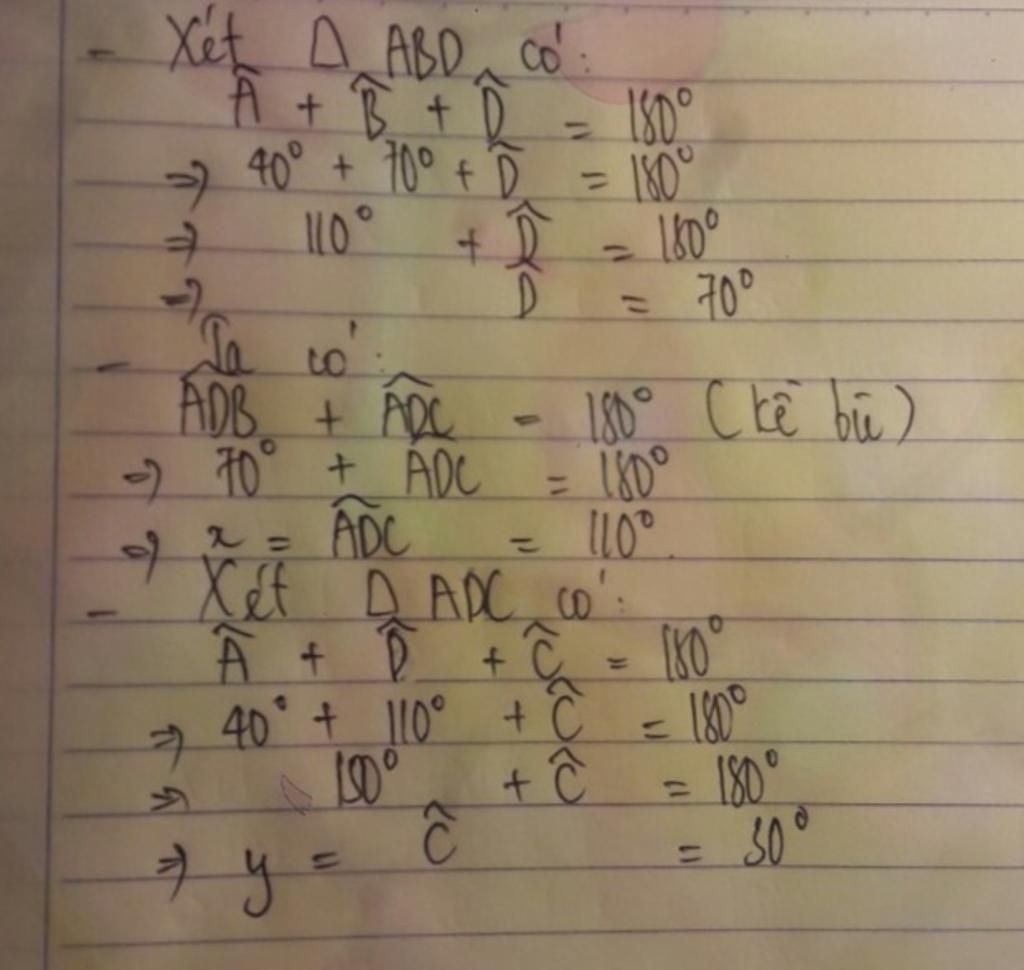 - Xét Δ ABD có:
Â + B̂ + D̂ = 180°
=> 40° + 70° + D̂ = 180°
=> 110° + D̂ = 180°
=> D̂ = 70°
- Ta có:
\widehat{ADB} + \widehat{ADC} = 180° (kề bù)
=> 70° + ADC = 180°
=> x = \widehat{ADC} = 110°.
- Xét Δ ADC có:
Â + D̂ + Ĉ = 180°
=> 40° + 110° + Ĉ = 180°
=> 150° + Ĉ = 180°
=> y = Ĉ = 30°